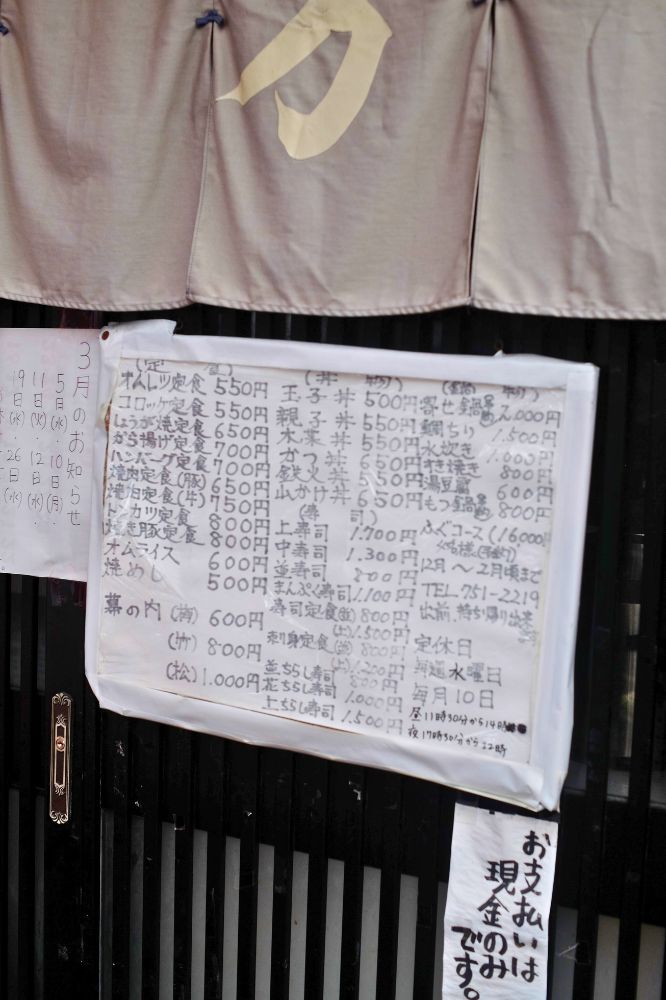 力
3月のお知らせ
5日(月)
11日(火)
19日(水)
10日(月)
12日(水)
26日(水)
(定食)
オムレツ定食 550円
コロッケ定食 550円
しょうが焼定食 650円
から揚げ定食 700円
ハンバーグ定食 700円
焼肉定食(豚) 650円
焼肉定食(牛) 750円
トンカツ定食 800円
焼き豚定食 800円
オムライス 600円
焼めし 500円
幕の内(梅) 600円
(竹) 800円
(松) 1.000円
(丼物)
玉子丼 500円
親子丼 550円
木葉丼 550円
かつ丼 650円
鉄火丼
山かけ丼 650円
(寿司)
上寿司 1.700円
中寿司 1.300円
並寿司 800円
まんぷく寿司 1.100円
寿司定食(並) 800円
(上) 1.500円
刺身定食(並) 800円
(上) 1.200円
並ちらし寿司 800円
花ちらし寿司 1.000円
上ちらし寿司 1.500円
(鍋物)
寄せ鍋 2.000円
鯛ちり 1.500円
水炊き 1.000円
すき焼き 800円
湯豆腐 600円
もつ鍋 800円
ふぐコース(16000円
12月〜2月頃まで
TEL 751-2219
出前、持ち帰り出来
定休日
毎週水曜日
毎月10日
昼11時30分から14時
夜17時30分から22時
お支払いは
現金のみ
です。